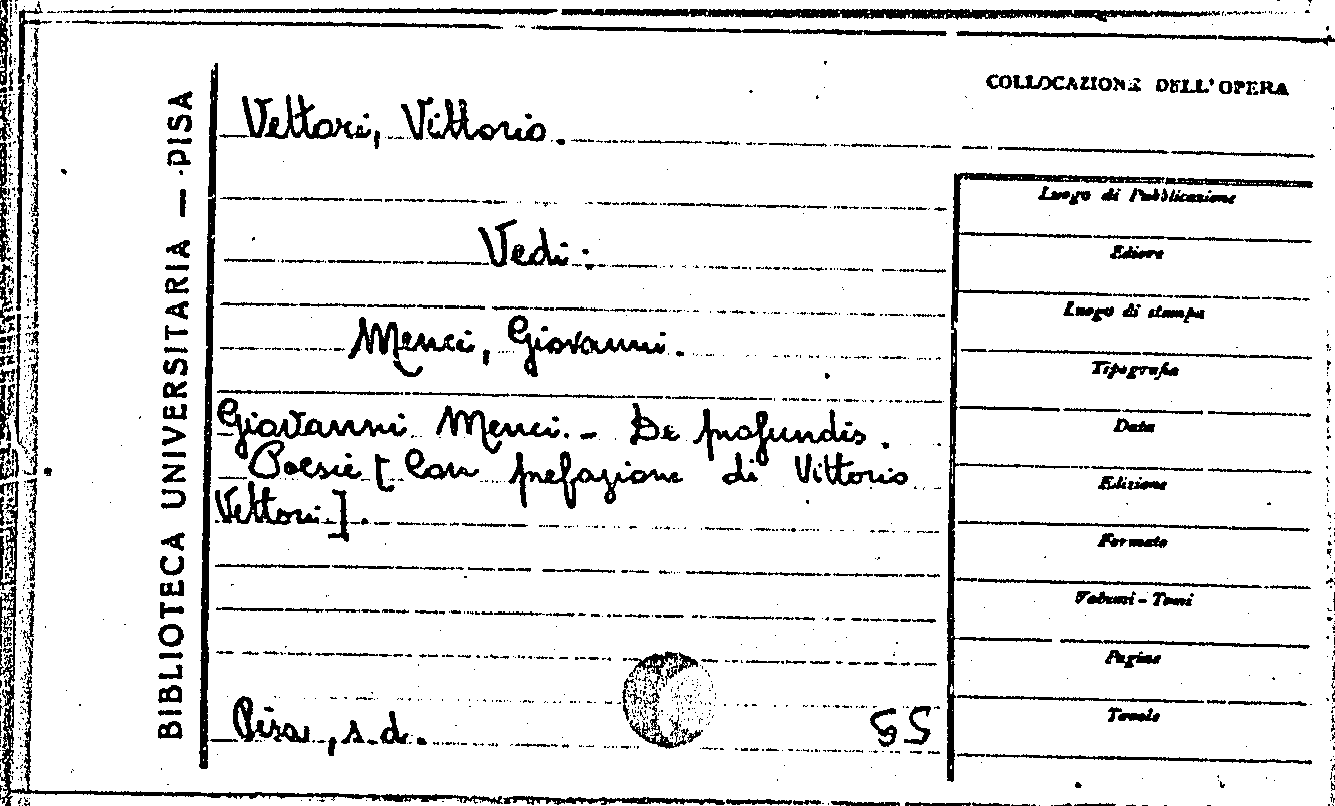 COLLOCAZIONE DELL'OPERA
BIBLIOTECA UNIVERSITARIA — PISA
Vettori, Vittorio.
Vedi:
Menci, Giovanni.
Giovanni Menci. - De profundis.
Poesie [Con prefazione di Vittorio
Vettori].
Pisa, s.d.
Luogo di Pubblicazione
Editore
Luogo di stampa
Tipografia
Data
Edizione
Formato
Volumi - Tomi
Pagine
Tavole